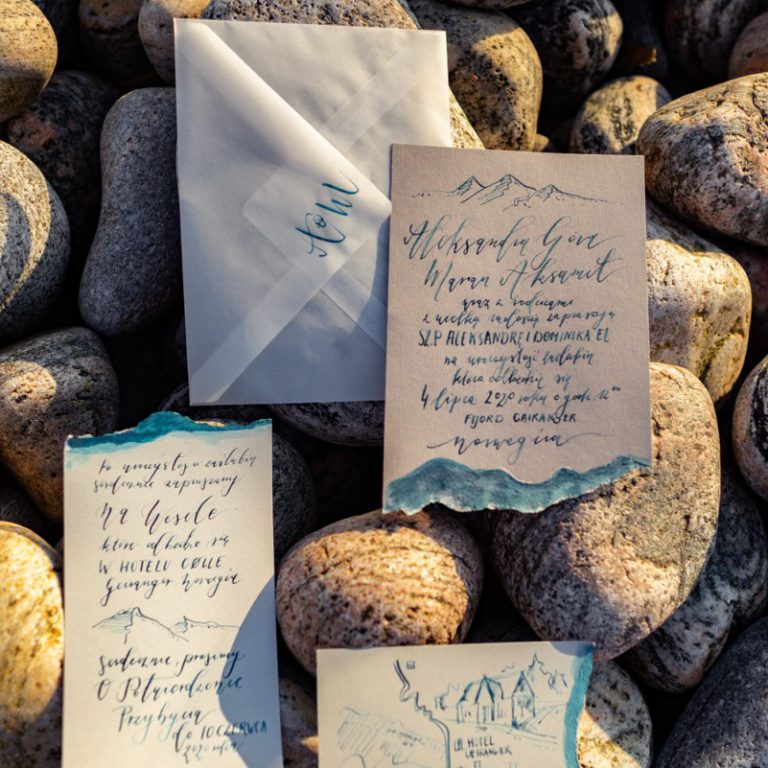 Aleksandra Góra
Maran Aksamit
wraz z rodzicami
z wielką radością zapraszają
SZ.P ALEKSANDRĘ I DOMINIKA EL
na uroczystość zaślubin
która odbędzie się
4 lipca 2020 roku o godz.
FJORD GAIRANGER
norwegia
Po uroczystości zaślubin
serdecznie zapraszamy
Na Wesele
które odbędzie się
W HOTELU COLLE
Geiranger Norwegia
serdecznie prosimy
O Potwierdzenie
Przybycia
do 10 CZERWCA
2020 roku
HOTEL
GEIRANGER